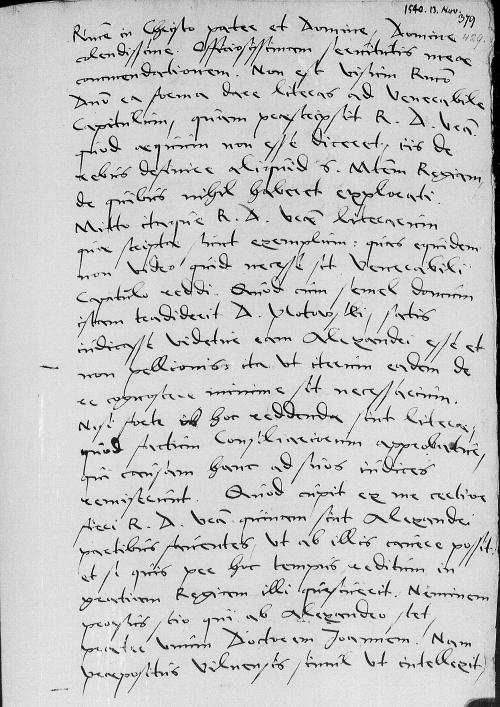 1540. 13. Nov.
379
429.
Rme in Christo pater et Domine, Domine
colendissime. Officiosissimam servitutis meae
commendationem. Non est visum Rmo
Dno ea forma dare literas ad Venerabile
Capitulum, quam praescripsit R. D. Vra,
quod aequum non esse diceret, iis de
rebus definire aliquid S. Mtem Regiam,
de quibus nihil haberet explorati.
Mitto itaque R. D. Vrae literarum
quae scriptae sunt exemplum: quas equidem
non video quid necesse sit Venerabili
Capitulo reddi. Quod cum semel domum
istam tradiderit D. Plotowski, satis
indicasse videtur eam Alexandri esse et
non pellionis: ita ut iterum eadem de
re cognoscere minime sit necessarium.
Nisi forte ob hoc reddendae sint literae,
quod factum Consiliariorum approbatur,
qui causam hanc ad suos iudices
remiserunt. Quod cupit ex me certior
fieri R. D. Vra quinam sint Alexandri
partibus faventes, ut ab illis cavere possit:
et si quis per hoc tempus reditum in
gratiam Regiam illi quaesiverit. Neminem
prorsus scio qui ab Alexandro stet,
praeter unum Doctorem Joannem. Nam
praepositus Vilnensis simul ut intellexit,